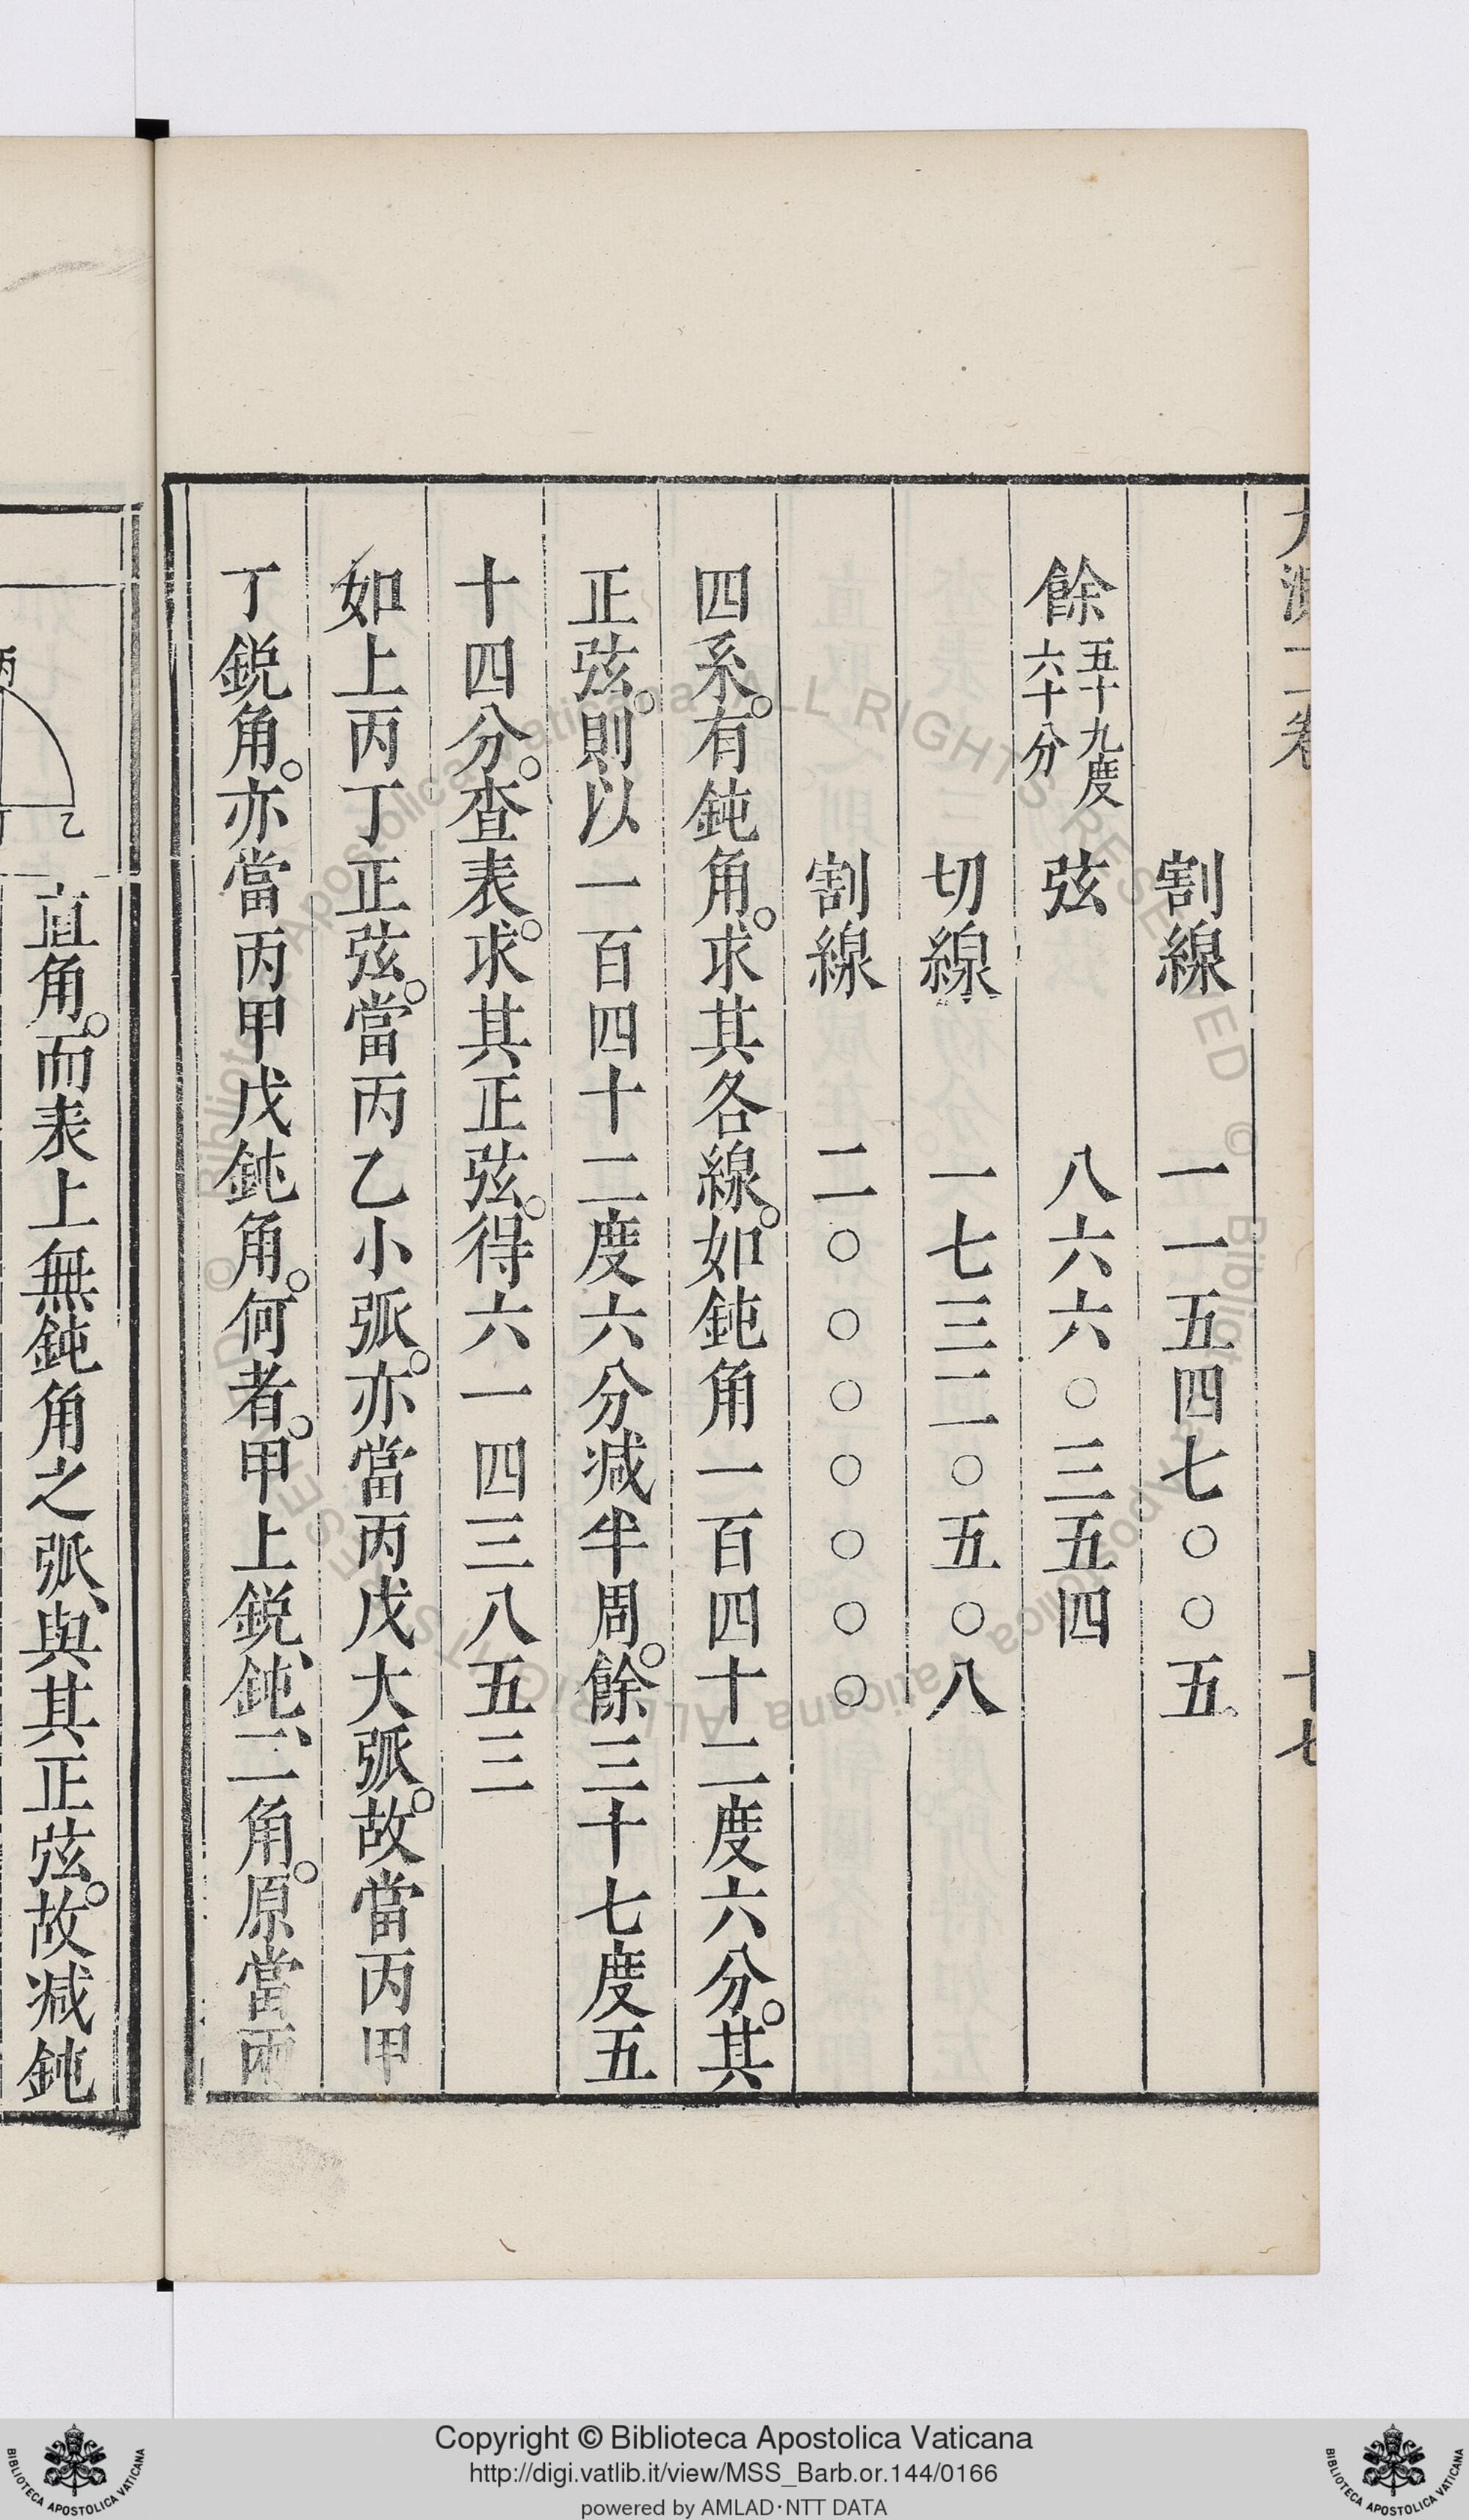 割線 一一五四七〇〇五
餘五十九度六十分 弦 八六六〇三五四
切線 一七三二〇五〇八
割線 二〇〇〇〇〇〇〇
四系。有鈍角。求其各線。如鈍角一百四十二度六分。其
正弦。則以一百四十二度六分减半周。餘三十七度五
十四分。查表。求其正弦。得六一四三八五三
如上丙丁正弦。當丙乙小弧。亦當丙戊大弧。故當丙甲
丁鋭角。亦當丙甲戊鈍角。何者。甲上鋭、鈍、二角。原當兩
十七
丙
乙
直角。而表上無鈍角之弧、與其正弦。故减鈍
Copyright © Biblioteca Apostolica Vaticana
http://digi.vatlib.it/view/MSS_Barb.or.144/0166
powered by AMLAD·NTT DATA
BIBLIOTECA APOSTOLICA VATICANA
BIBLIOTECA APOSTOLICA VATICANA